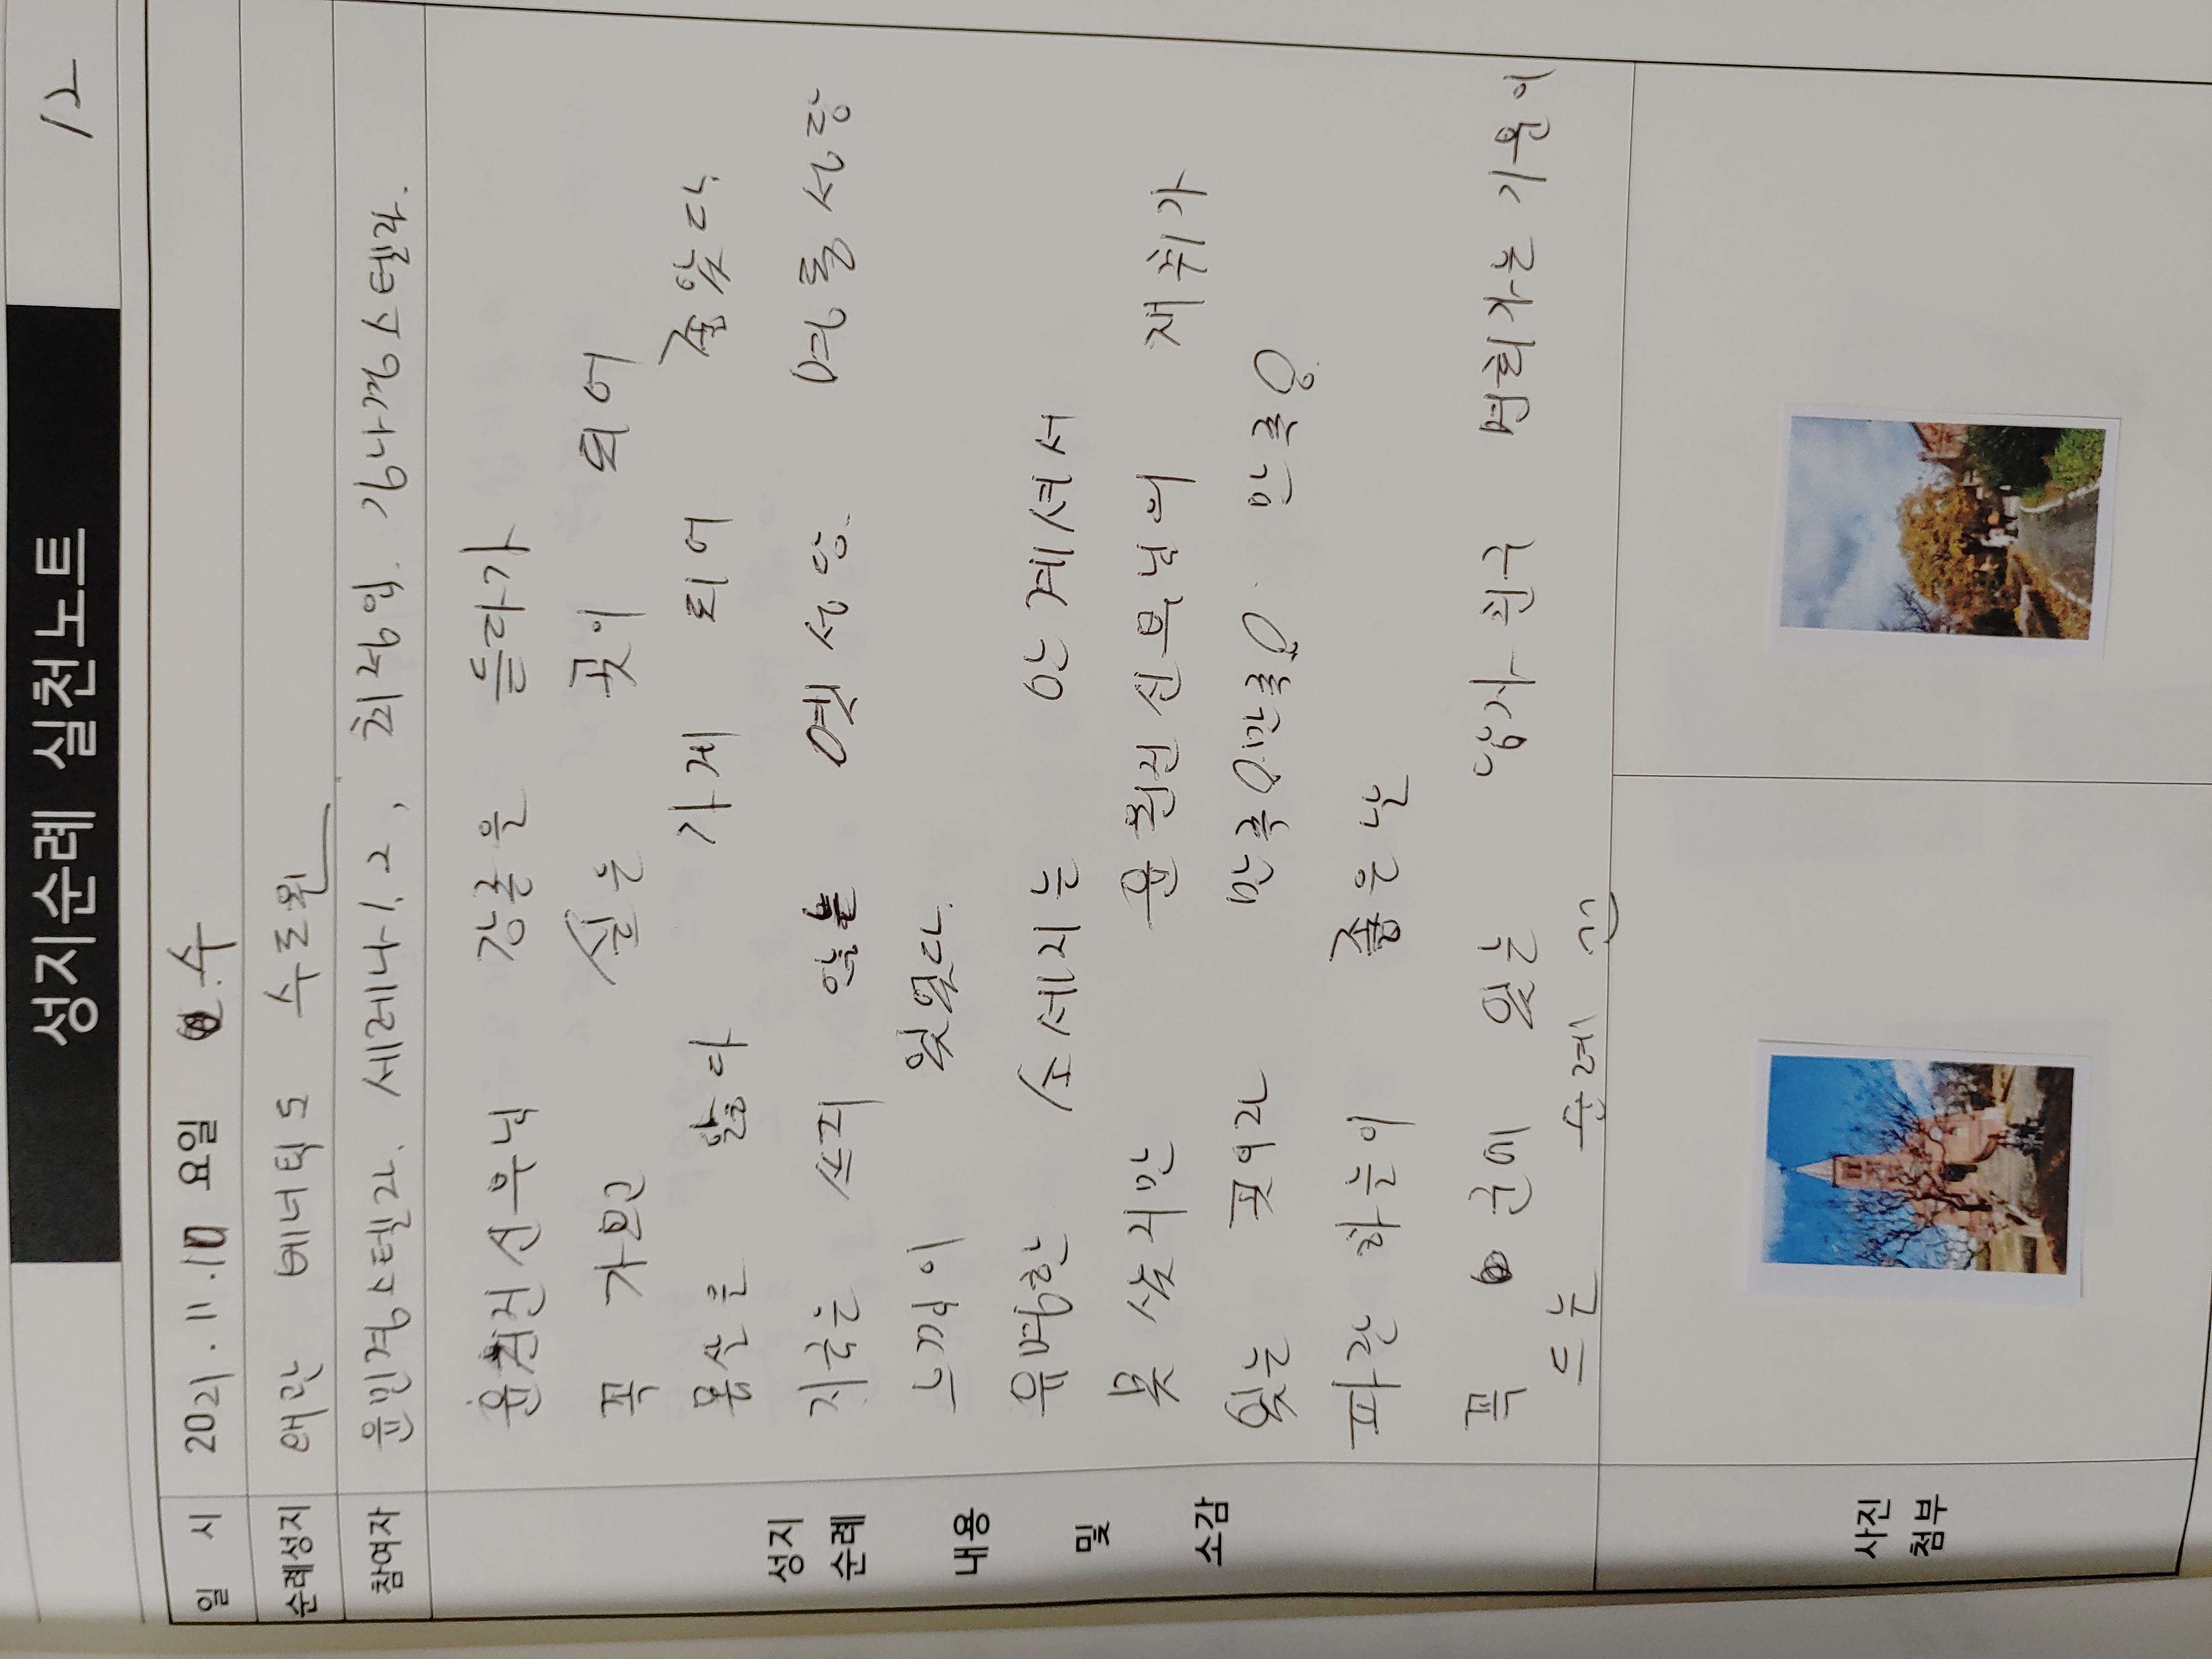 성지순례 실천노트 12
일 시 2021.11.10 요일 수
순례성지 왜관 베네딕도 수도원
참여자 윤민경스텔라. 세레나1.2, 최정임. 김나경스텔라.
신부님 강론을 듣다가
꼭 가보고 싶은 곳이 되어
가게 되어 좋았다.
지금은 쓰지 않는 옛성당. 명동성당
느낌이 있었다.
유명한 소세지는 안계셔서
못 샀지만 신부님의 재취가
있는 곳이라 만족 만족 만족
파란 하늘이 좋은 날
꼭 군에 있는 남자친구 면회가는 기분이
드는 순례
성지
순례
내용
및
소감
사진
첨부